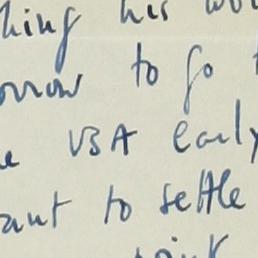 thing his wo
orrow to go t
e USA early
ant to settle
point